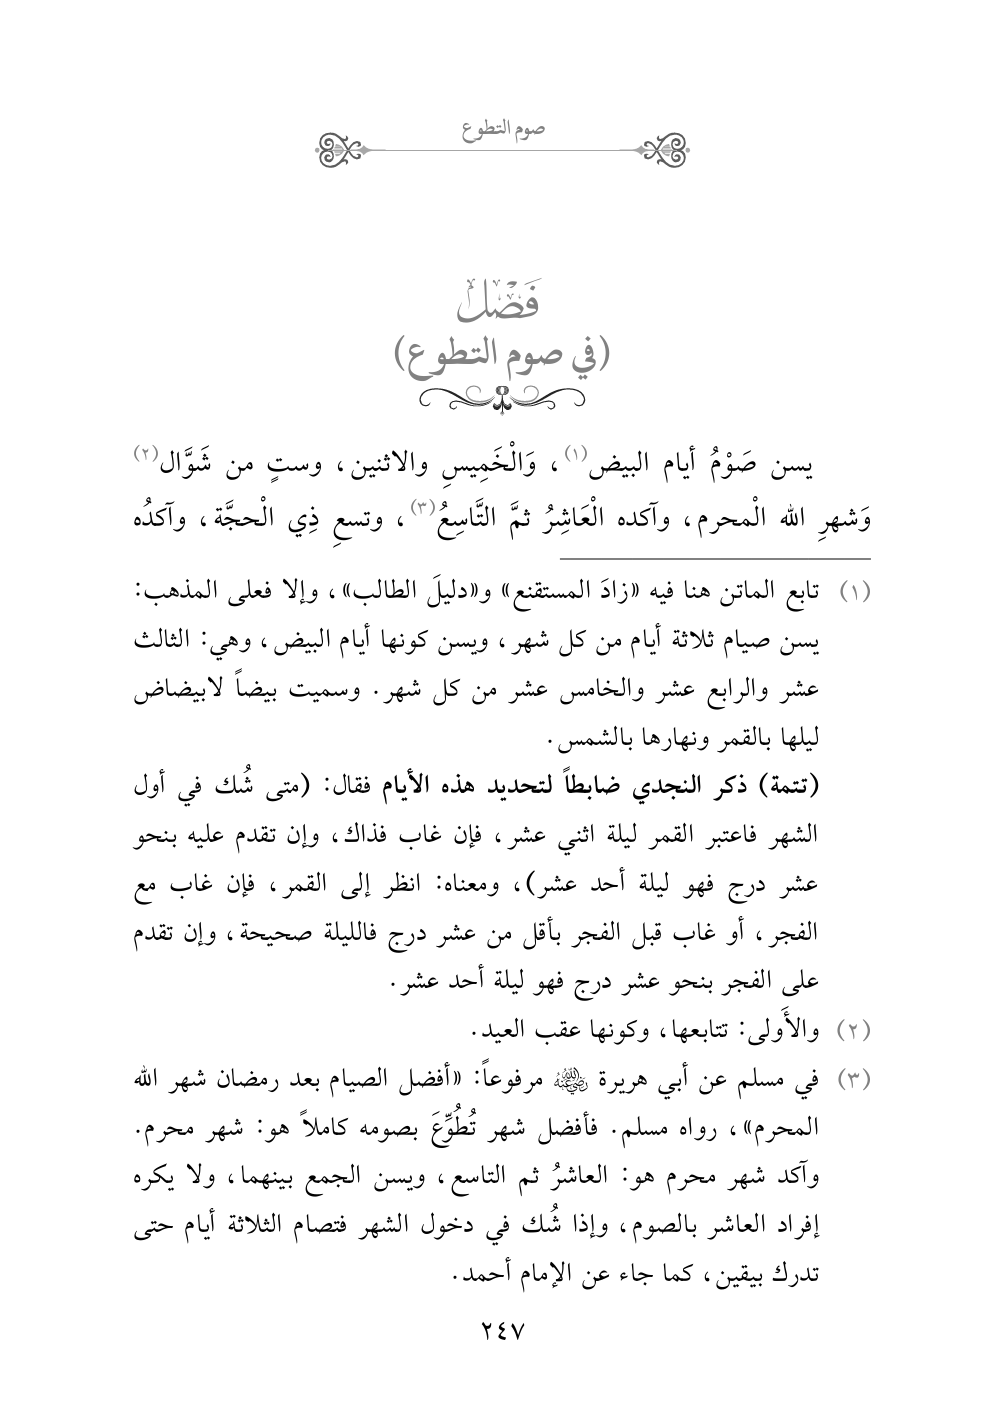 صوم التطوع
فَصْلٌ
(في صوم التطوع)
يسن صَوْمُ أيام البيض(١)، وَالْخَمِيسِ والاثنين، وستٍ من شَوَّال(٢)
وَشهرِ الله الْمحرم، وآكده الْعَاشِرُ ثمَّ التَّاسِعُ(٣)، وتسعِ ذِي الْحجَّة، وآكدُه
(١) تابع الماتن هنا فيه «زادَ المستقنع» و«دليلَ الطالب»، وإلا فعلى المذهب:
يسن صيام ثلاثة أيام من كل شهر، ويسن كونها أيام البيض، وهي: الثالث
عشر والرابع عشر والخامس عشر من كل شهر. وسميت بيضاً لابيضاض
ليلها بالقمر ونهارها بالشمس.
(تتمة) ذكر النجدي ضابطاً لتحديد هذه الأيام فقال: (متى شُك في أول
الشهر فاعتبر القمر ليلة اثني عشر، فإن غاب فذاك، وإن تقدم عليه بنحو
عشر درج فهو ليلة أحد عشر)، ومعناه: انظر إلى القمر، فإن غاب مع
الفجر، أو غاب قبل الفجر بأقل من عشر درج فالليلة صحيحة، وإن تقدم
على الفجر بنحو عشر درج فهو ليلة أحد عشر.
(٢) والأَولى: تتابعها، وكونها عقب العيد.
(٣) في مسلم عن أبي هريرة رضي الله عنه مرفوعاً: «أفضل الصيام بعد رمضان شهر الله
المحرم»، رواه مسلم. فأفضل شهر تُطُوِّعَ بصومه كاملاً هو: شهر محرم.
وآكد شهر محرم هو: العاشرُ ثم التاسع، ويسن الجمع بينهما، ولا يكره
إفراد العاشر بالصوم، وإذا شُك في دخول الشهر فتصام الثلاثة أيام حتى
تدرك بيقين، كما جاء عن الإمام أحمد.
٢٤٧